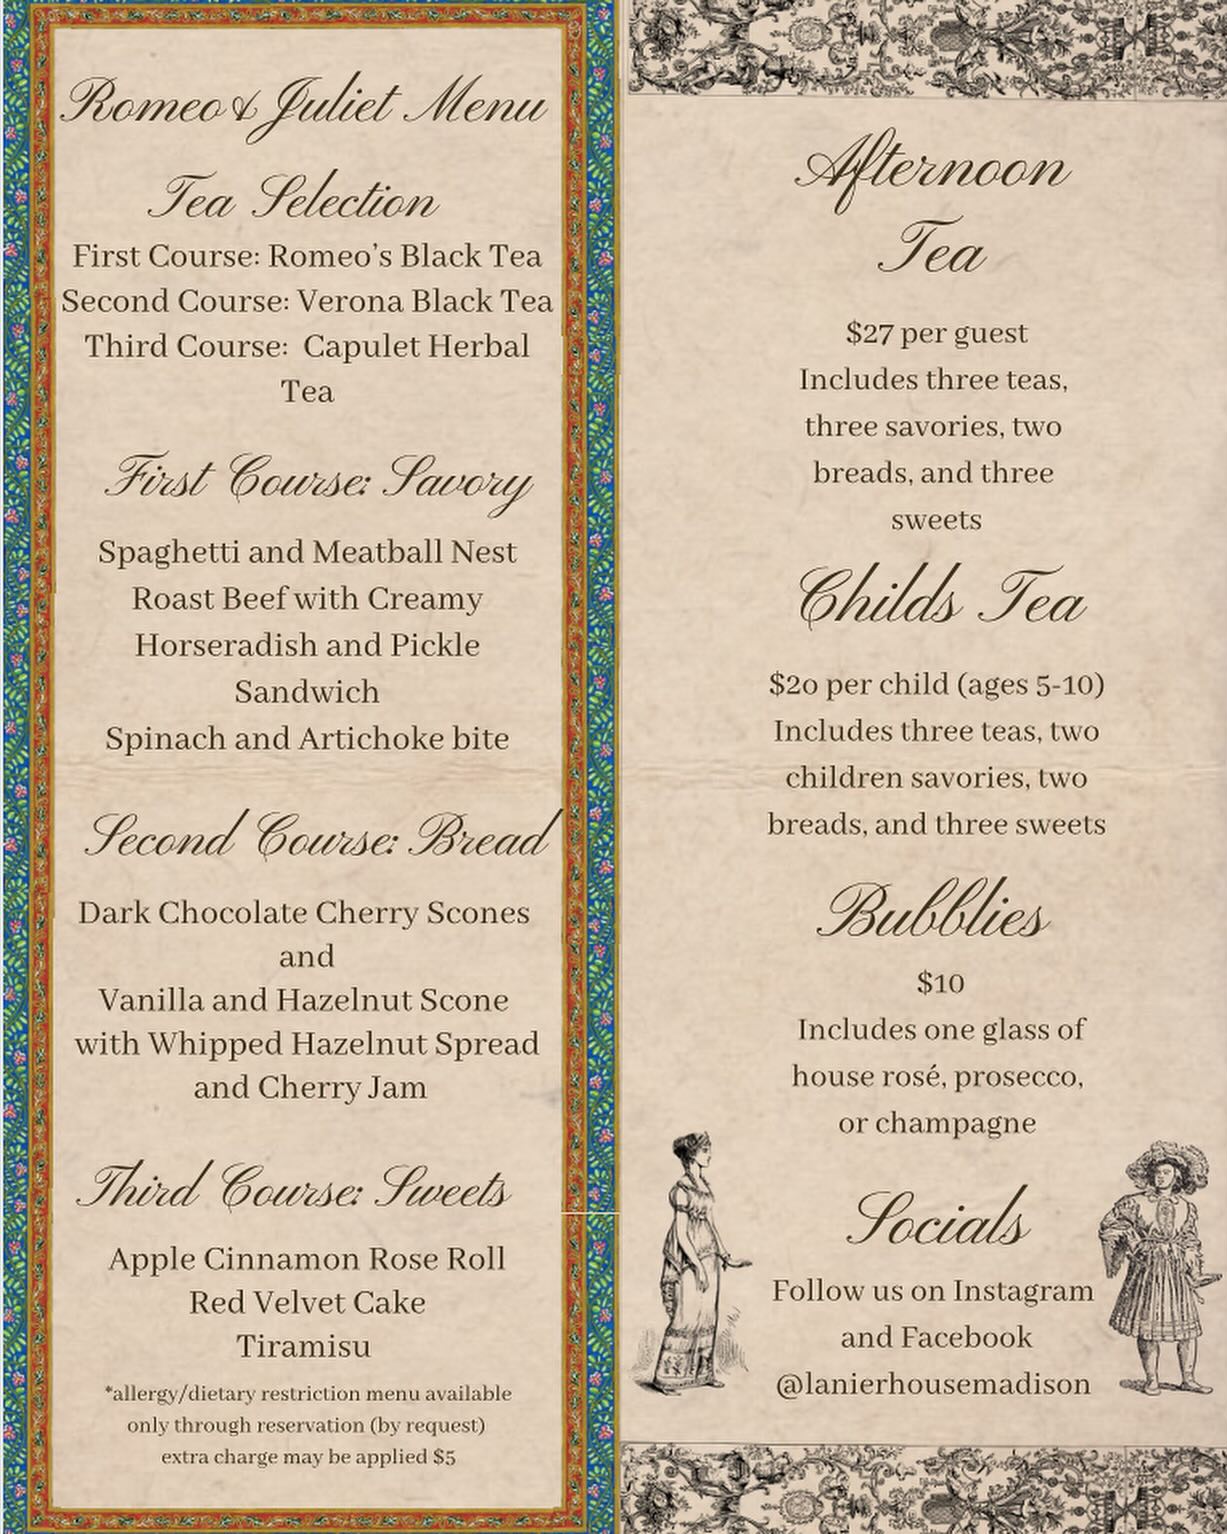 Romeo & Juliet Menu
Tea Selection
First Course: Romeo's Black Tea
Second Course: Verona Black Tea
Third Course: Capulet Herbal
Tea
First Course: Savory
Spaghetti and Meatball Nest
Roast Beef with Creamy
Horseradish and Pickle
Sandwich
Spinach and Artichoke bite
Second Course: Bread
Dark Chocolate Cherry Scones
and
Vanilla and Hazelnut Scone
with Whipped Hazelnut Spread
and Cherry Jam
Third Course: Sweets
Apple Cinnamon Rose Roll
Red Velvet Cake
Tiramisu
*allergy/dietary restriction menu available
only through reservation (by request)
extra charge may be applied $5
Afternoon
Tea
$27 per guest
Includes three teas,
three savories, two
breads, and three
sweets
Childs Tea
$20 per child (ages 5-10)
Includes three teas, two
children savories, two
breads, and three sweets
Bubblies
$10
Includes one glass of
house rosé, prosecco,
or champagne
Socials
Follow us on Instagram
and Facebook
@lanierhousemadison